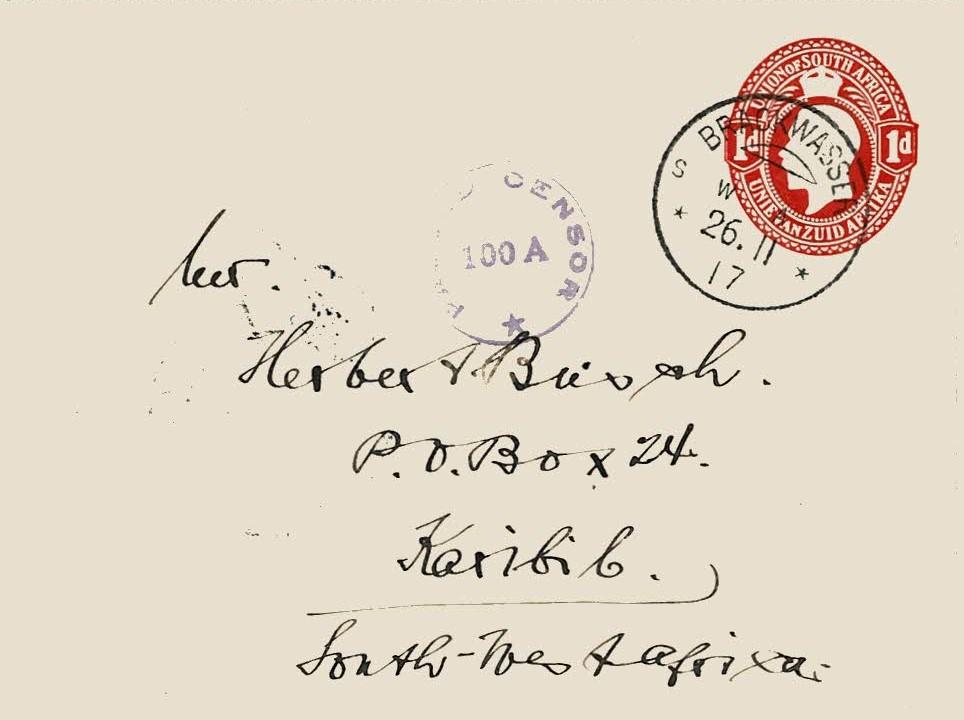 UNION OF SOUTH AFRICA
1d 1d
UNIE VAN ZUID AFRIKA
BRACKWASSER
S W A
26.11
17
CENSOR
100 A
Mr.
Herbert Büsch.
P.O. Box 24.
Karibib.
South-West Africa.